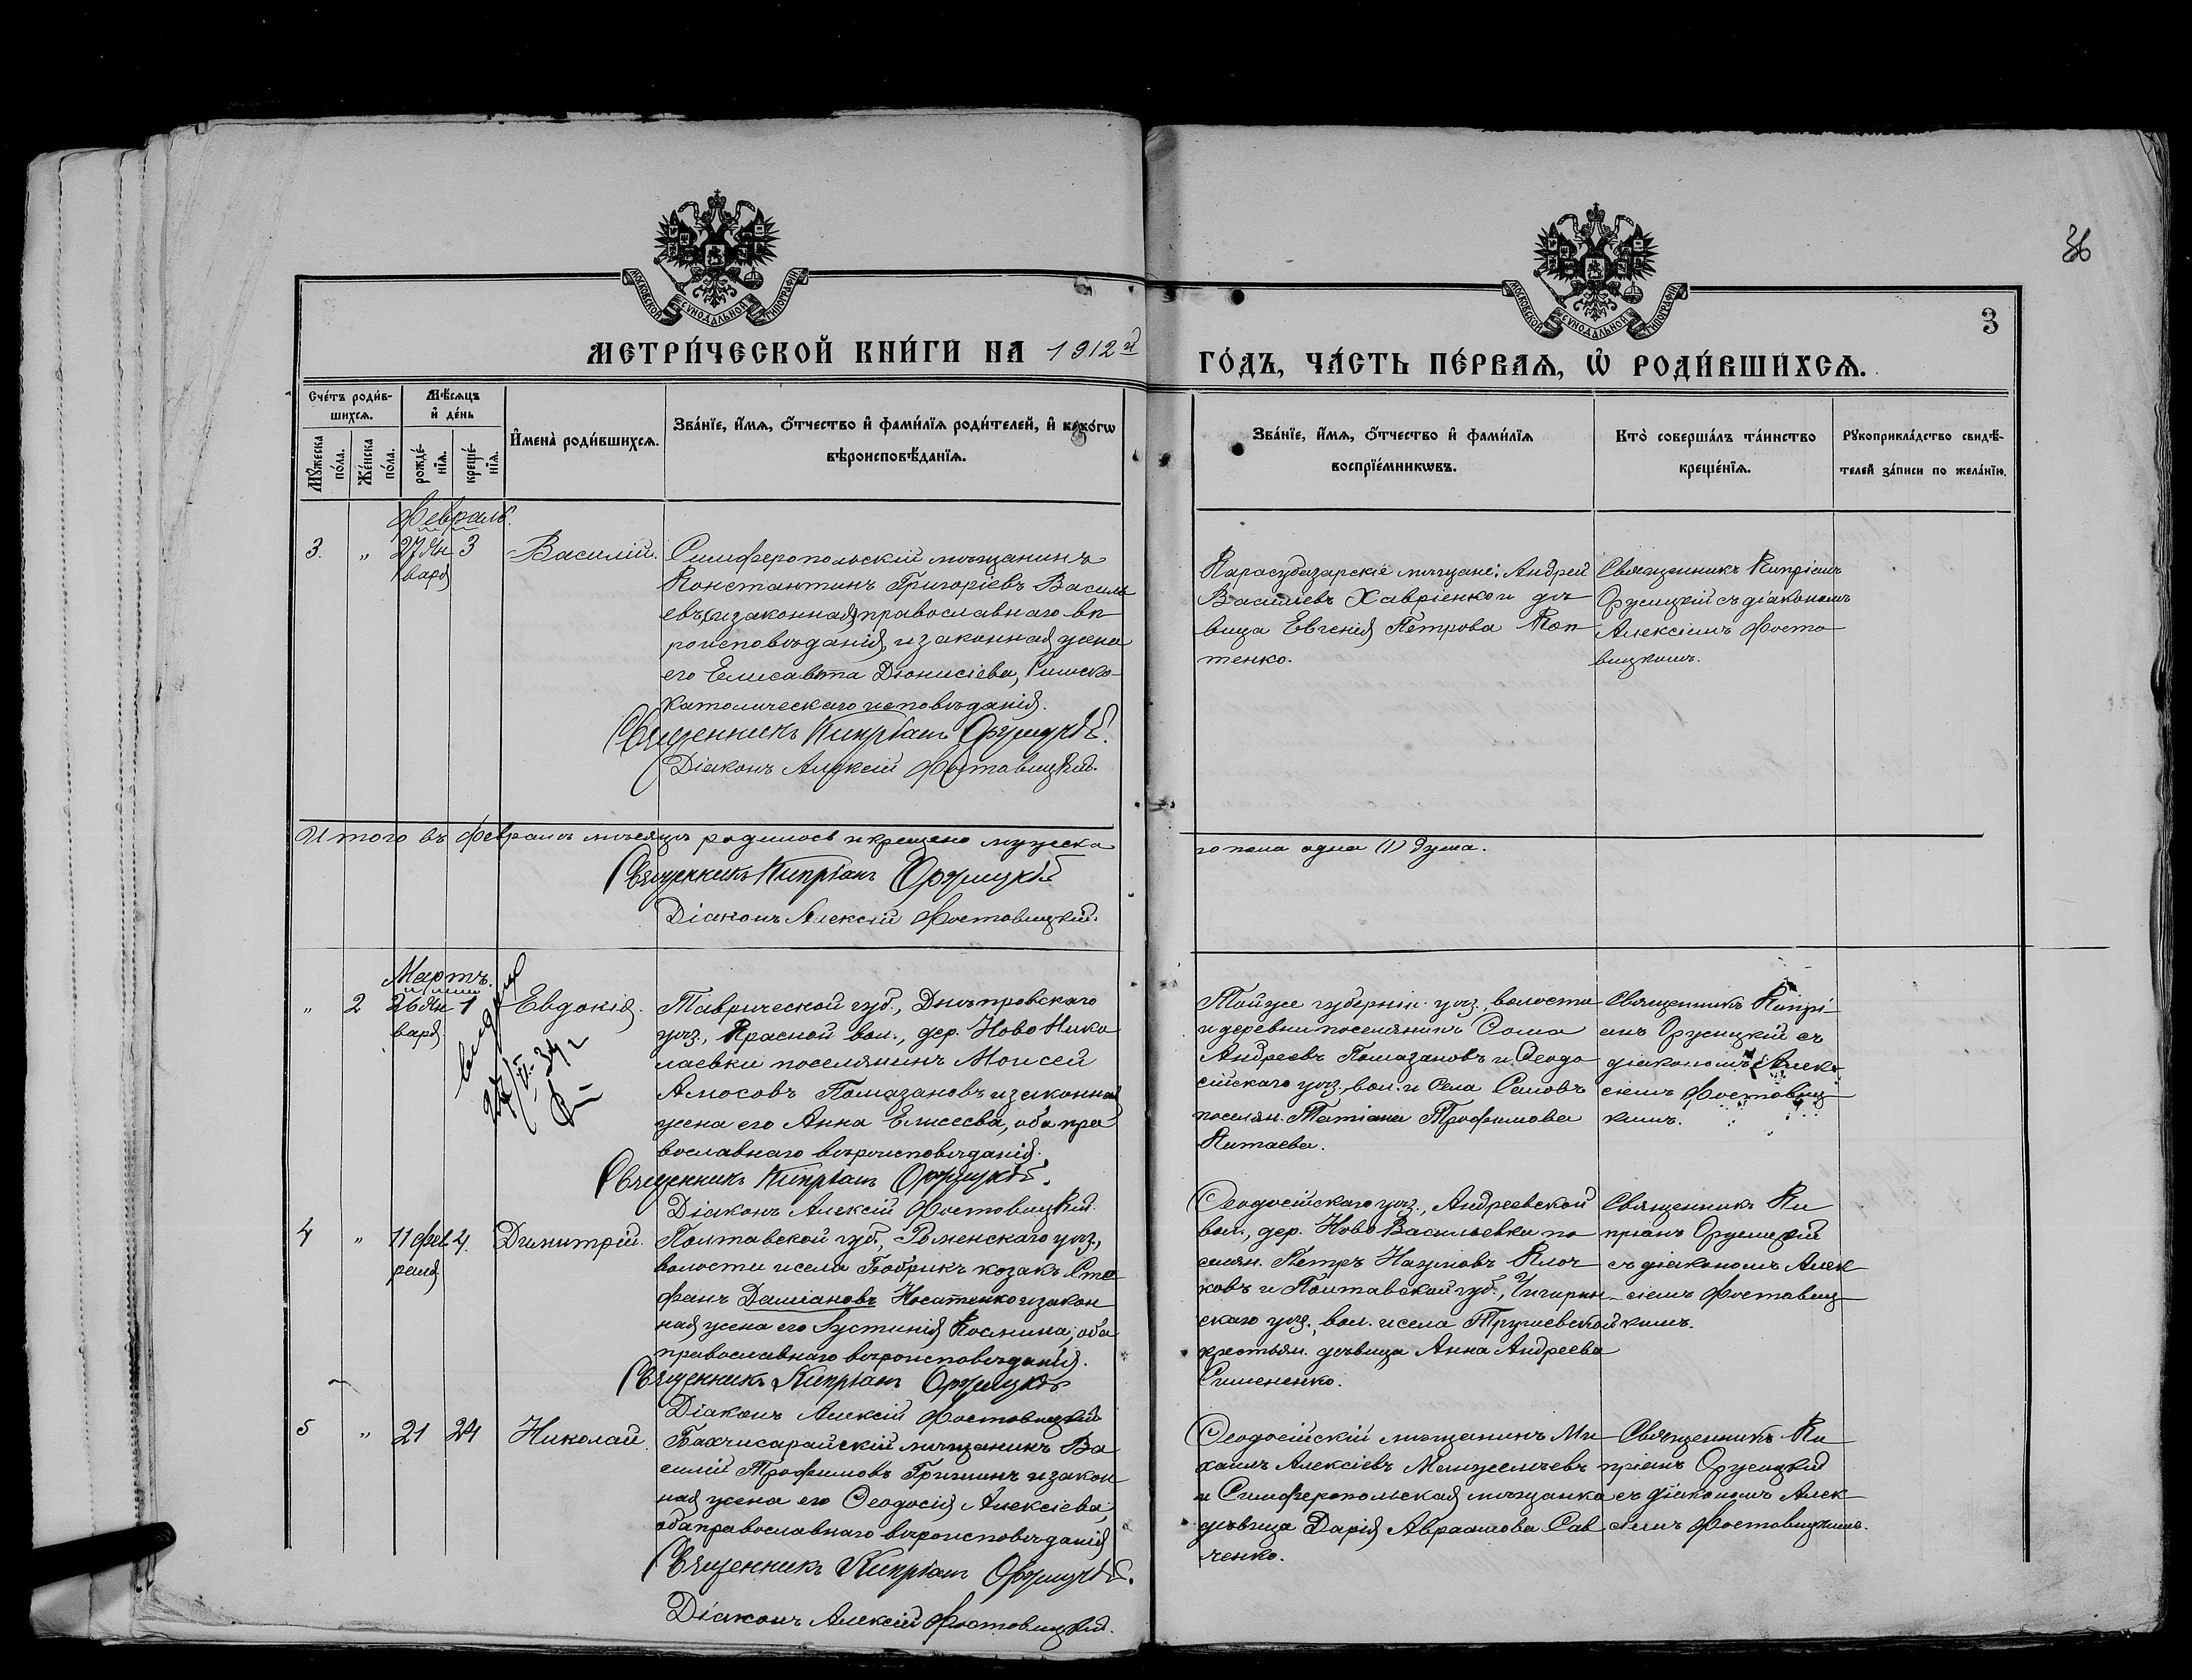 36
3
МОСКОВСКОЙ СѴНОДАЛЬНОЙ ТИПОГРАФІИ
МОСКОВСКОЙ СѴНОДАЛЬНОЙ ТИПОГРАФІИ
МЕТРИ́ЧЕСКОЙ КНИ́ГИ НА 1912й
ГО́ДЪ, ЧА́СТЬ ПЕ́РВАѦ, Ѡ҆ РОДИ́ВШИХСѦ.
Сче́тъ роди́в-
шихсѧ.
Мѣ́сѧцъ
и҆ де́нь
Мꙋ́жеска
по́ла.
Же́нска
по́ла.
рожде́-
нїѧ.
креще́-
нїѧ.
И҆мена̀ роди́вшихсѧ.
Зва́нїе, и҆́мѧ, ѻ҆́тчество и҆ фами́лїѧ роди́телей, и҆ како́гѡ
вѣроисповѣ́данїѧ.
Зва́нїе, и҆́мѧ, ѻ҆́тчество и҆ фами́лїѧ
воспрїе́мникѡвъ.
Кто̀ соверша́лъ та́инство
креще́нїѧ.
Рꙋкоприкла́дство свидѣ́-
телей за́писи по жела́нїю.
Февраль.
3. " 27 Ян 3 Василій.
варя
Симферопольскій мѣщанинъ
Константинъ Григоріевъ Василь
евъ (и законная) православнаго вѣ
роисповѣданія, и законная жена
его Елисавета Діонисіева, Римско-
католическаго исповѣданія.
Священникъ Кипріанъ Оржицкій.
Діаконъ Алексій Фостовицкій.
Карасубазарскіе мѣщане: Андрей
Василіевъ Хавріенко и дѣ
вица Евгенія Петрова Коп
тенко.
Священникъ Кипріанъ
Оржицкій съ діакономъ
Алексіемъ Фосто
вицкимъ.
Итого въ Февралѣ мѣсяцѣ родилось и крещено мужеска
го пола одна (1) душа.
Священникъ Кипріанъ Оржицкій
Діаконъ Алексій Фостовицкій.
Мартъ.
" 2 26 Ян 1 Евдокія.
варя
34 г
Таврической губ., Днѣпровскаго
уѣз., Красной вол., дер. Ново Нико
лаевки поселянинъ Моисей
Амосовъ Помазановъ и законная
жена его Анна Елисеева, оба пра
вославнаго вѣроисповѣданія.
Священникъ Кипріанъ Оржицкій.
Діаконъ Алексій Фостовицкій.
Той же губерніи уѣз., волости
и деревни поселянинъ Сама
Андреевъ Помазановъ и Ѳеодо
сійскаго уѣз., вол. и села Саловъ
поселян. Татіана Трофимова
Китаева.
Священникъ Кипрі
анъ Оржицкій съ
діакономъ Алек
сіемъ Фостовиц
кимъ.
4 " 11 Фев 4. Димитрій.
раля
Полтавской губ., Роменскаго уѣз.,
волости и села Бобрикъ козакъ Сте
фанъ Даміановъ Носатенко и закон
ная жена его Іустинія Космина, оба
православнаго вѣроисповѣданія.
Священникъ Кипріанъ Оржицкій
Діаконъ Алексій Фостовицкій
Ѳеодосійскаго уѣз., Андреевской
вол., дер. Ново Васильевки по
селян. Петръ Наумовъ Клоч
ковъ и Полтавской губ., Чигирин
скаго уѣз., вол. и села Трушевской
крестьян. дѣвица Анна Андреева
Симененко.
Священникъ Ки
пріанъ Оржицкій
съ діакономъ Алек
сіемъ Фостовиц
кимъ.
5 " 21 24 Николай.
Бахчисарайскій мѣщанинъ Ва
силій Трофимовъ Гришинъ и закон
ная жена его Ѳеодосія Алексіева,
оба православнаго вѣроисповѣданія
Священникъ Кипріанъ Оржицкій.
Діаконъ Алексій Фостовицкій.
Ѳеодосійскій мѣщанинъ Ми
хаилъ Алексіевъ Мануельевъ
и Симферопольская мѣщанка
дѣвица Дарія Авраамова Сав
ченко.
Священникъ Ки
пріанъ Оржицкій
съ діакономъ Алек
сіемъ Фостовицкимъ.